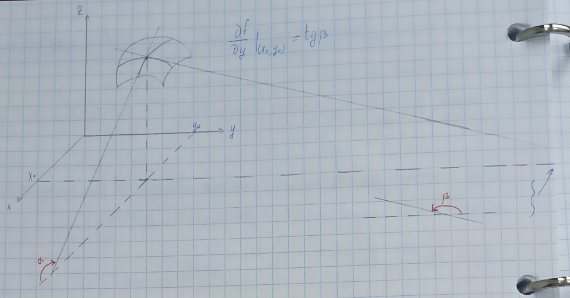 z
∂f/∂y |(x₀,y₀) = tgβ
y₀
y
x₀
x
β
α